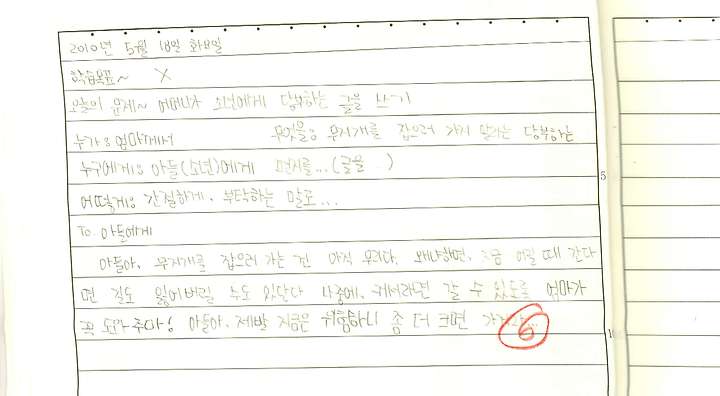 2010년 5월 18일 화요일
학습목표~ X
오늘의 문제~ 어머니가 소년에게 당부하는 글을 쓰기
누가: 엄마께서 무엇을: 무지개를 잡으러 가지 말라는 당부하는
누구에게: 아들(소년)에게 편지를...(글을 )
어떻게: 간절하게, 부탁하는 말로...
To. 아들에게
아들아, 무지개를 잡으러 가는 건 아직 무리다. 왜냐하면, 지금 어릴 때 간다
면 길도 잃어버릴 수도 있단다 나중에, 커서라면 갈 수 있도록 엄마가
꼭 도와주마! 아들아, 제발 지금은 위험하니 좀 더 크면
6
5